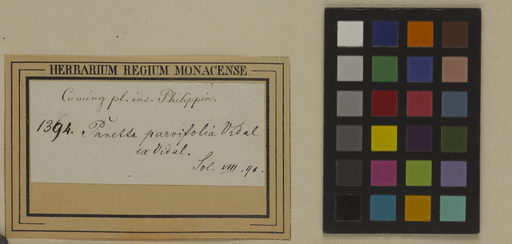 HERBARIUM REGIUM MONACENSE
Cuming pl. ins. Philippin.
1394. Pavetta parvifolia Vidal
ex Vidal.
Sol. VIII. 91.